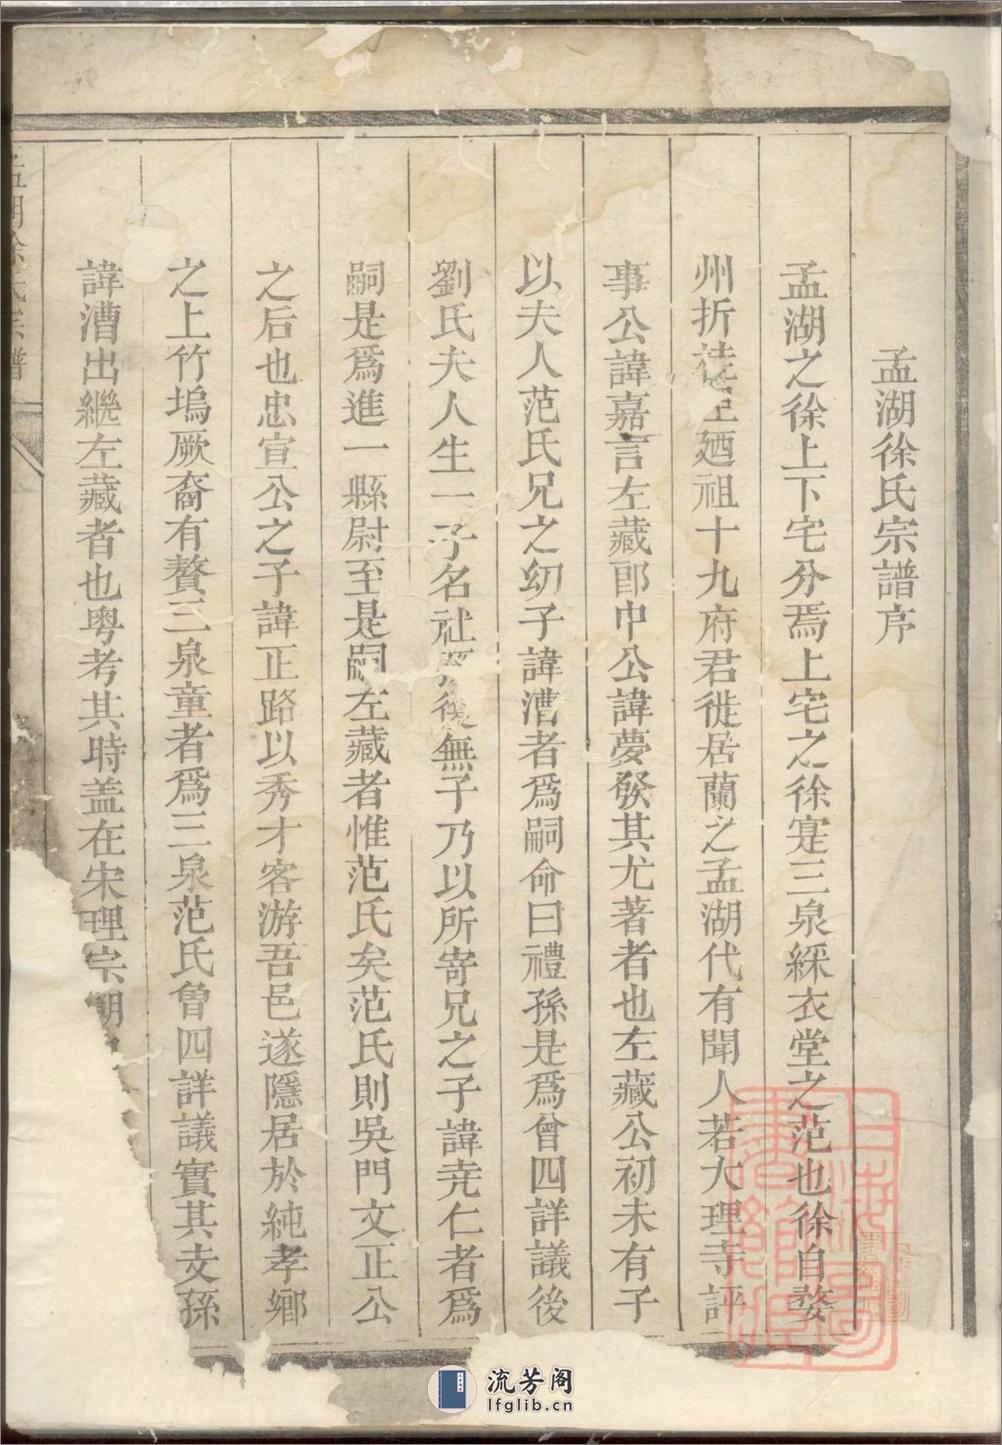 孟湖徐氏宗譜序
孟湖之徐上下宅分焉上宅之徐寔三泉綵衣堂之范也徐自婺
州折徒至廼祖十九府君徙居蘭之孟湖代有聞人若大理寺評
事公諱嘉言左藏郎中公諱夢發其尤著者也左藏公初未有子
以夫人范氏兄之幼子諱漕者爲嗣命曰禮孫是爲曾四詳議後
劉氏夫人生一子名社復無子乃以所寄兄之子諱尭仁者爲
嗣是爲進一縣尉至是嗣左藏者惟范氏矣范氏則吳門文正公
之后也忠宣公之子諱正路以秀才客游吾邑遂隱居於純孝鄉
之上竹塢厥裔有贅三泉童者爲三泉范氏曾四詳議實其支孫
諱漕出繼左藏者也粤考其時盖在宋理宗
孟湖徐氏宗譜
上海圖書館藏
流芳阁
lfglib.cn